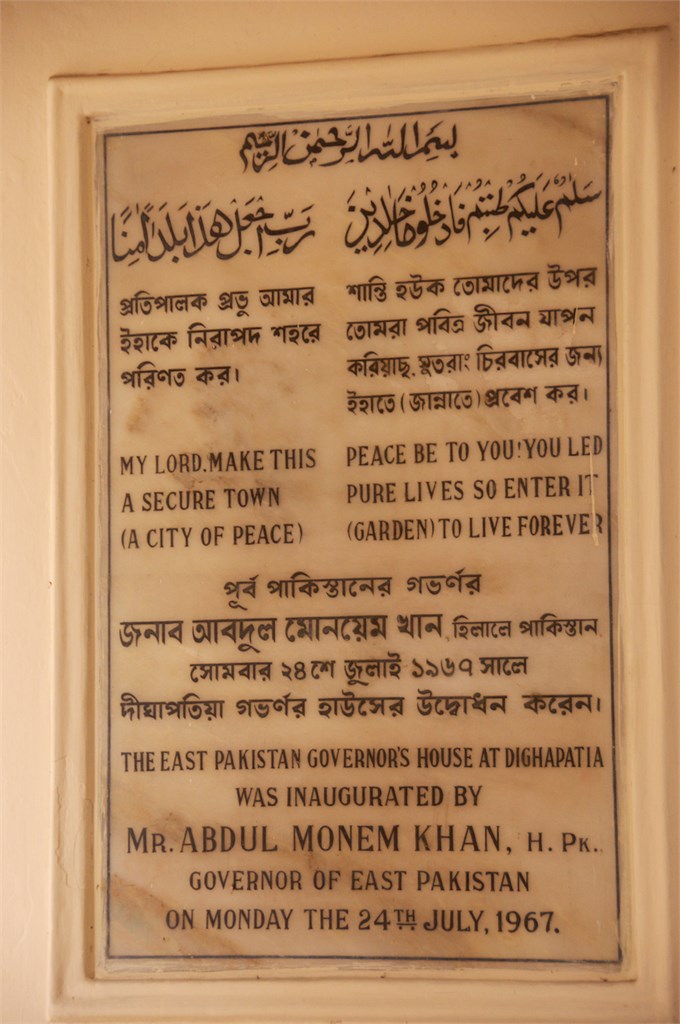 بسم الله الرحمن الرحيم
سلم عليكم طبتم فادخلوها خلدين
رب اجعل هذا بلدا امنا
শান্তি হউক তোমাদের উপর
তোমরা পবিত্র জীবন যাপন
করিয়াছ, সুতরাং চিরবাসের জন্য
ইহাতে (জান্নাতে) প্রবেশ কর।
প্রতিপালক প্রভু আমার
ইহাকে নিরাপদ শহরে
পরিণত কর।
MY LORD, MAKE THIS
A SECURE TOWN
(A CITY OF PEACE)
PEACE BE TO YOU! YOU LED
PURE LIVES SO ENTER IT
(GARDEN) TO LIVE FOREVER
পূর্ব পাকিস্তানের গভর্ণর
জনাব আবদুল মোনয়েম খান, হিলালে পাকিস্তান,
সোমবার ২৪শে জুলাই ১৯৬৭ সালে
দীঘাপতিয়া গভর্ণর হাউসের উদ্বোধন করেন।
THE EAST PAKISTAN GOVERNOR'S HOUSE AT DIGHAPATIA
WAS INAUGURATED BY
MR. ABDUL MONEM KHAN, H. PK.
GOVERNOR OF EAST PAKISTAN
ON MONDAY THE 24TH JULY, 1967.